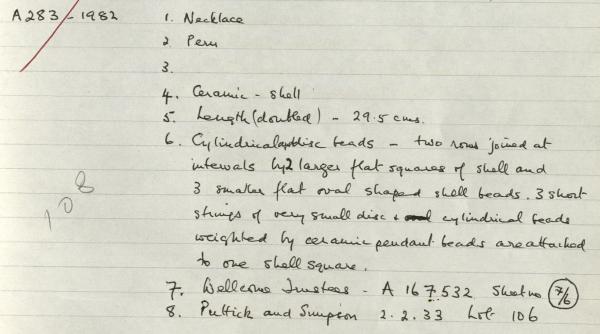 A283-1982 1. Necklace
2. Peru
3.
4. Ceramic - shell
5. Length (doubled) - 29.5 cms.
6. Cylindrical and disc beads - two rows joined at
intervals by 2 larger flat squares of shell and
3 smaller flat oval shaped shell beads. 3 short
strings of very small disc & cylindrical beads
weighted by ceramic pendant beads are attached
to one shell square.
108
7. Wellcome Trustees - A 167532 Sheet no 7/6
8. Puttick and Simpson 2.2.33 Lot 106